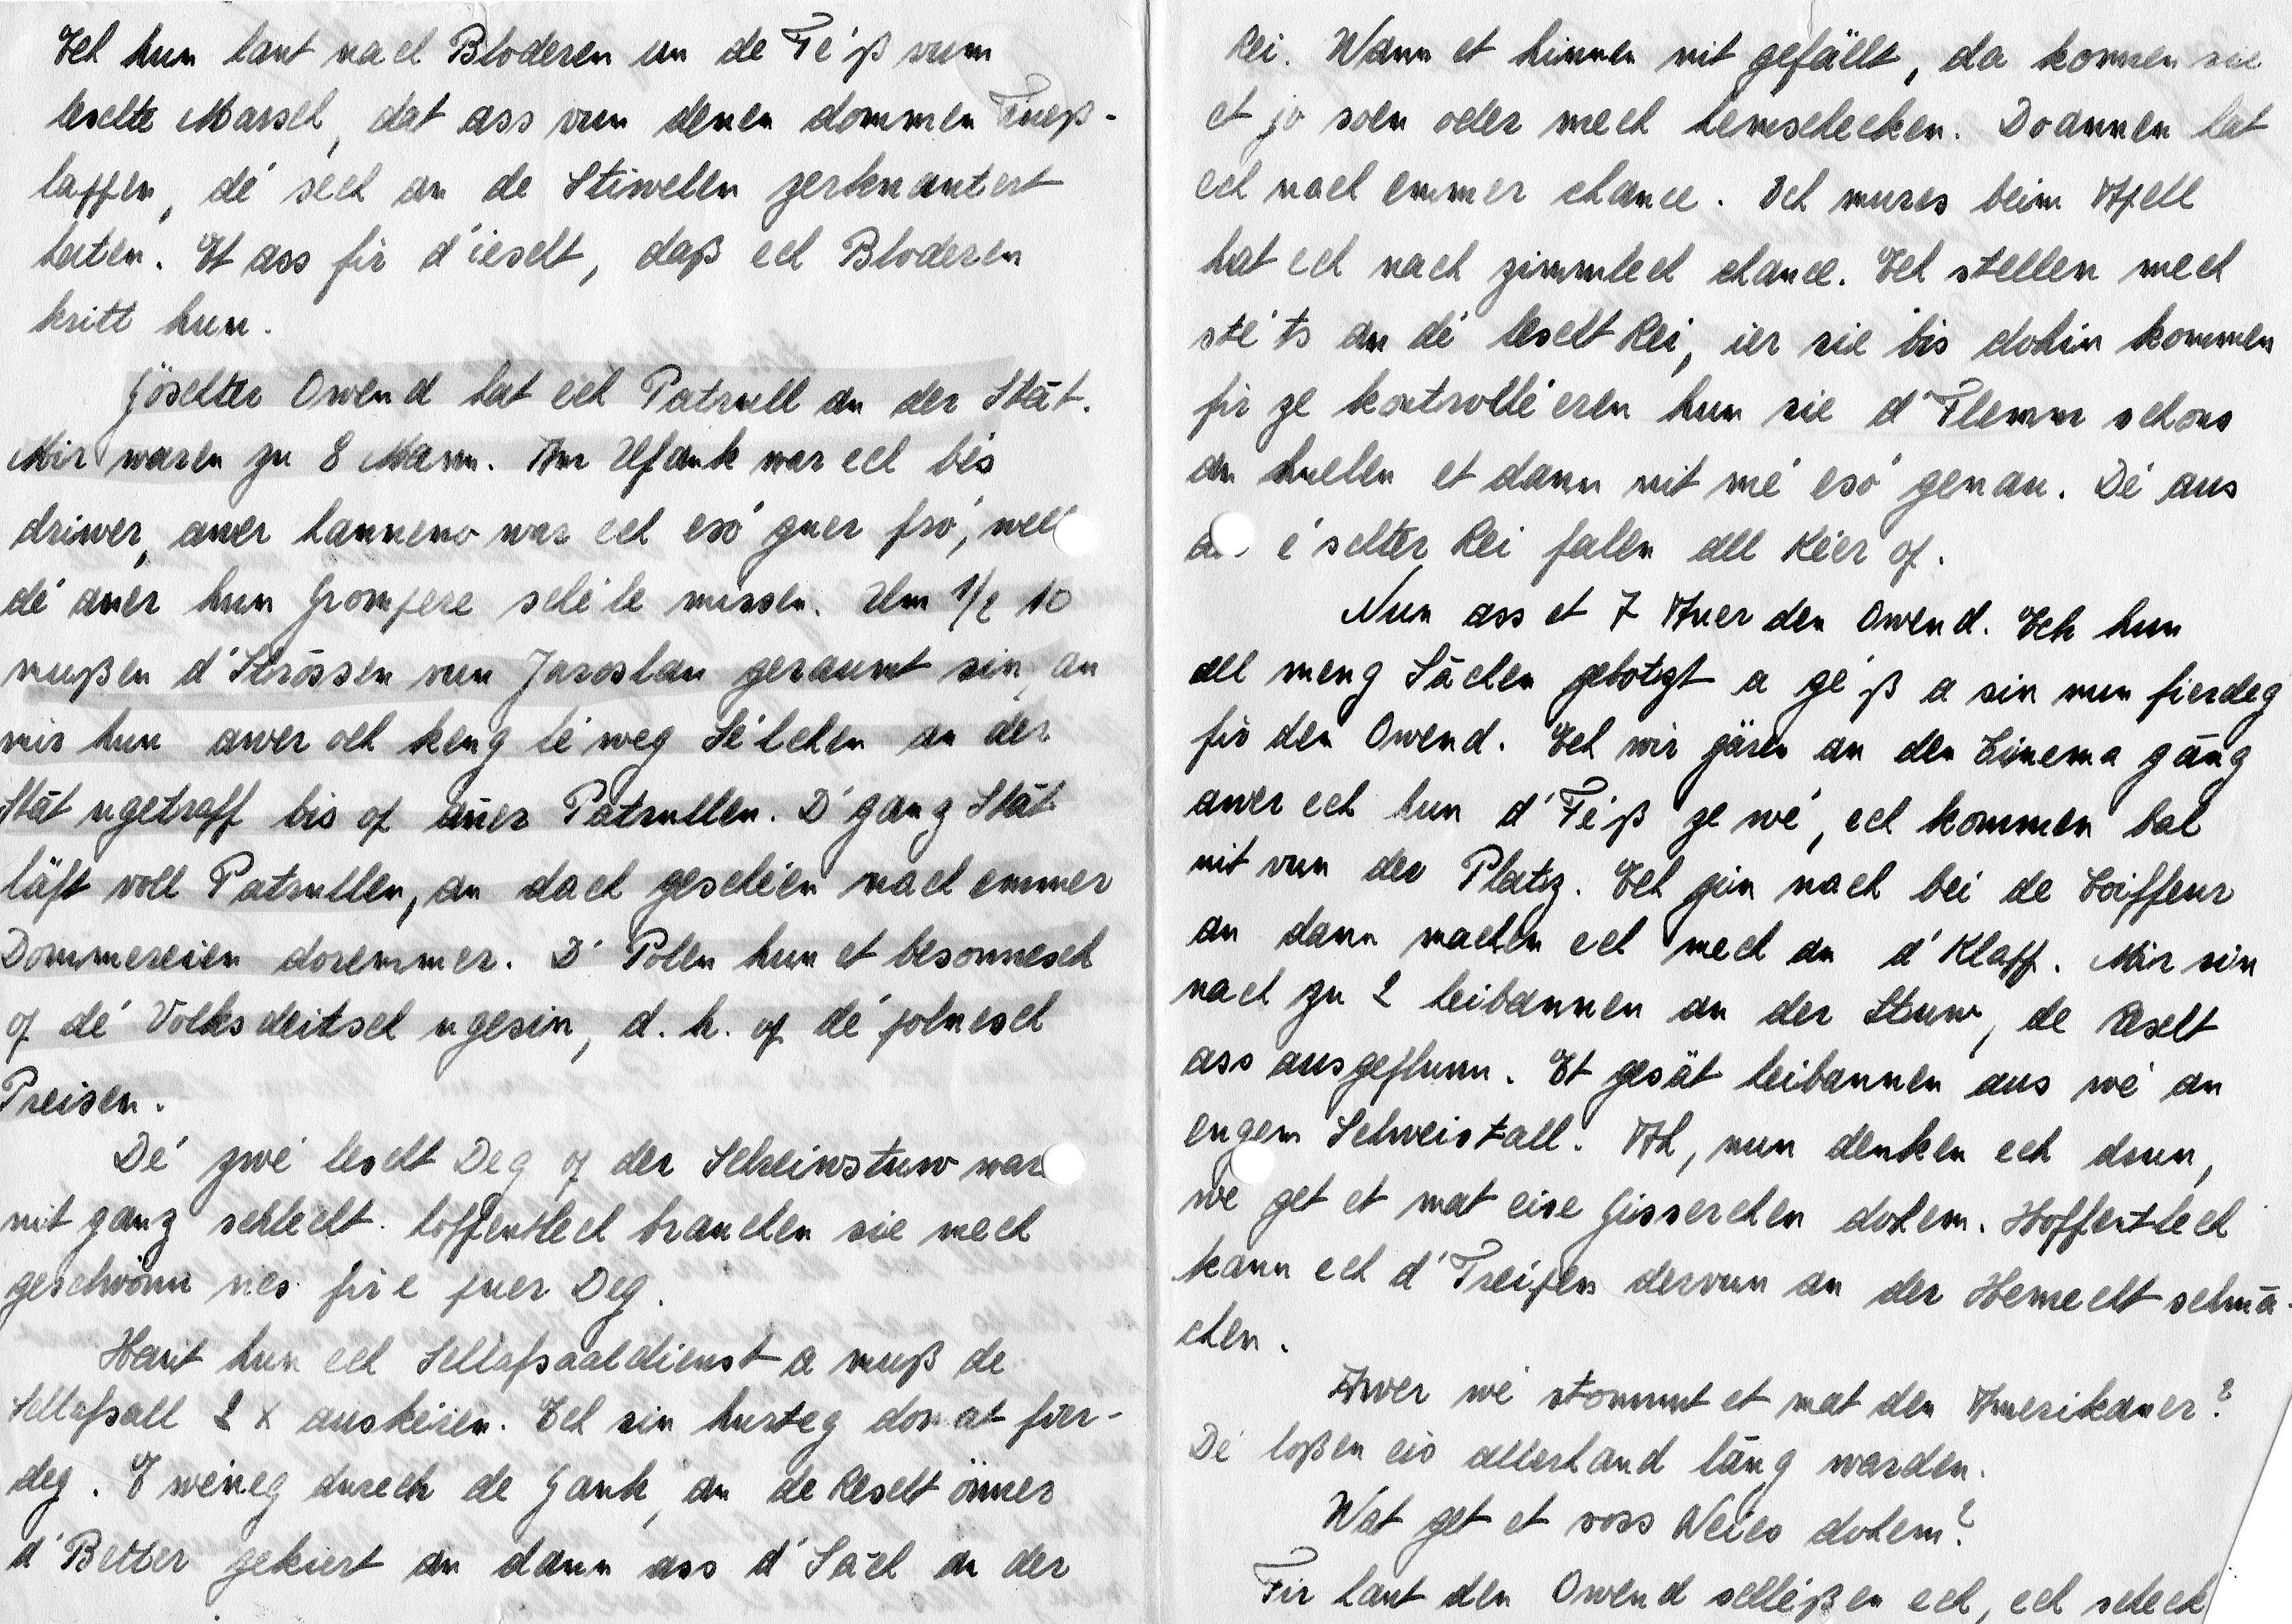 Ech hun haut nach Bloderen un de Féiß vum
leschte Marsch, dat ass vun denen dommen Fueß-
lappen, dé sech an de Stiwelen zerknautert
haten. Et ass fir d'iescht, daß ech Bloderen
kritt hun.
Göschter Owend hat ech Patrull an der Stât.
Mir waren zu 8 Mann. Am Ufank war ech bés
driwer, awer hanneno war ech esó guer fró, well
dé aner hun Grompere schéile missen. Um 1/2 10
mußen d'Strôssen vun Jaroslau geraumt sin, an
mir hun awer och keng léiweg Séilchen an der
Stât ugetraff bis op aner Patrullen. D'ganz Stât
läft voll Patrullen, an dach geschéien nach emmer
Dommereien doremmer. D'Polen hun et besonnesch
op dé Volksdeitsch ugesin, d.h. op dé polnesch
Preisen.
Dé zwé lescht Deg op der Schreiwstuw war
nit ganz schlecht. hoffentlech brauchen sie mech
geschwönn nes fir e puer Deg.
Haut hun ech Schlafsaaldienst a muß de
Schlafsall 2 x auskéieren. Ech sin hurteg domat fier-
deg. E wéineg durech de Gank, an de Rescht önner
d'Better gekiert an dann ass d'Sâch an der
Rei. Wann et hinnen nit gefällt, da konnen sie
et jo soen oder mech hemschecken. Doannen hat
ech nach emmer chance. Och mures beim Apell
hat ech nach zimmlech chance. Ech stellen mech
stéts an dé lescht Rei, ier sie bis dohin kommen
fir ze kontrolléieren hun sie d'Flemm schons
an huelen et dann nit mé esó genau. Dé aus
é schter Rei falen all Kéier op.
Nun ass et 7 Auer den Owend. Ech hun
all meng Sâchen gebotzt a géß a sin nun fierdeg
fir den Owend. Ech wir gären an den Cinema gâng
awer ech hun d'Féiß ze wé, ech kommen bal
nit vun der Platz. Ech gin nach bei de Coiffeur
an dann machen ech mech an d'Klaff. Mir sin
nach zu 2 heibannen an der Stuw, de Rescht
ass ausgeflunn. Et gesät heibannen aus wé an
engem Schweistall. Ah, nun denken ech drun,
wé get et mat eise Gisserchen dohem. Hoffentlech
kann ech d'Treipen dervun an der Hemecht schmâ-
chen.
Awer wé stommt et mat den Amerikaner?
Dé loßen eis allerhand lâng warden.
Wat get et soss Neies dohem?
Fir haut den Owend schléißen ech, ech scheck